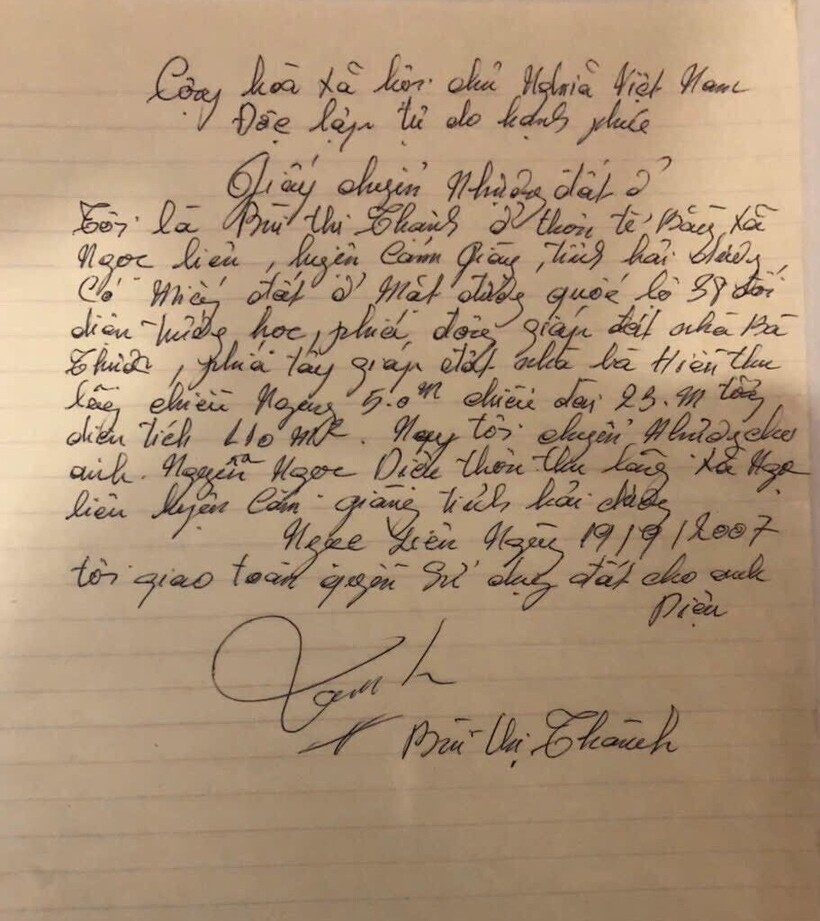 Cộng hoà xã hôi chủ Nghĩã Việt Nam
Độc lập tự do hạnh phúc
Giấy chuyển Nhượng đất ở
Tôi là Bùi thị Thành ở thôn tế Bằng xã
Ngọc liên, huyện Cẩm Giàng, tỉnh hải dương,
Có Miếng đất ở Mặt đường quốc lộ 38 đối
diện trường học, phiá đông giáp đất nhà Bà
, phiá tây giáp đất nhà bà Hiền thu
lãng chiều Ngang 5.0m chiều dài 23.m tổng
diên tích 110 M2. Nay tôi chuyển Nhượng cho
anh. Nguyễn Ngọc Diên thôn thu lãng xã Ngọ
liên huyện Cẩm giàng tỉnh hải dương
Ngọc Liên Ngày 19/9/2007
tôi giao toàn quyền sử dụng đất cho anh
Diện
Bùi thị Thành